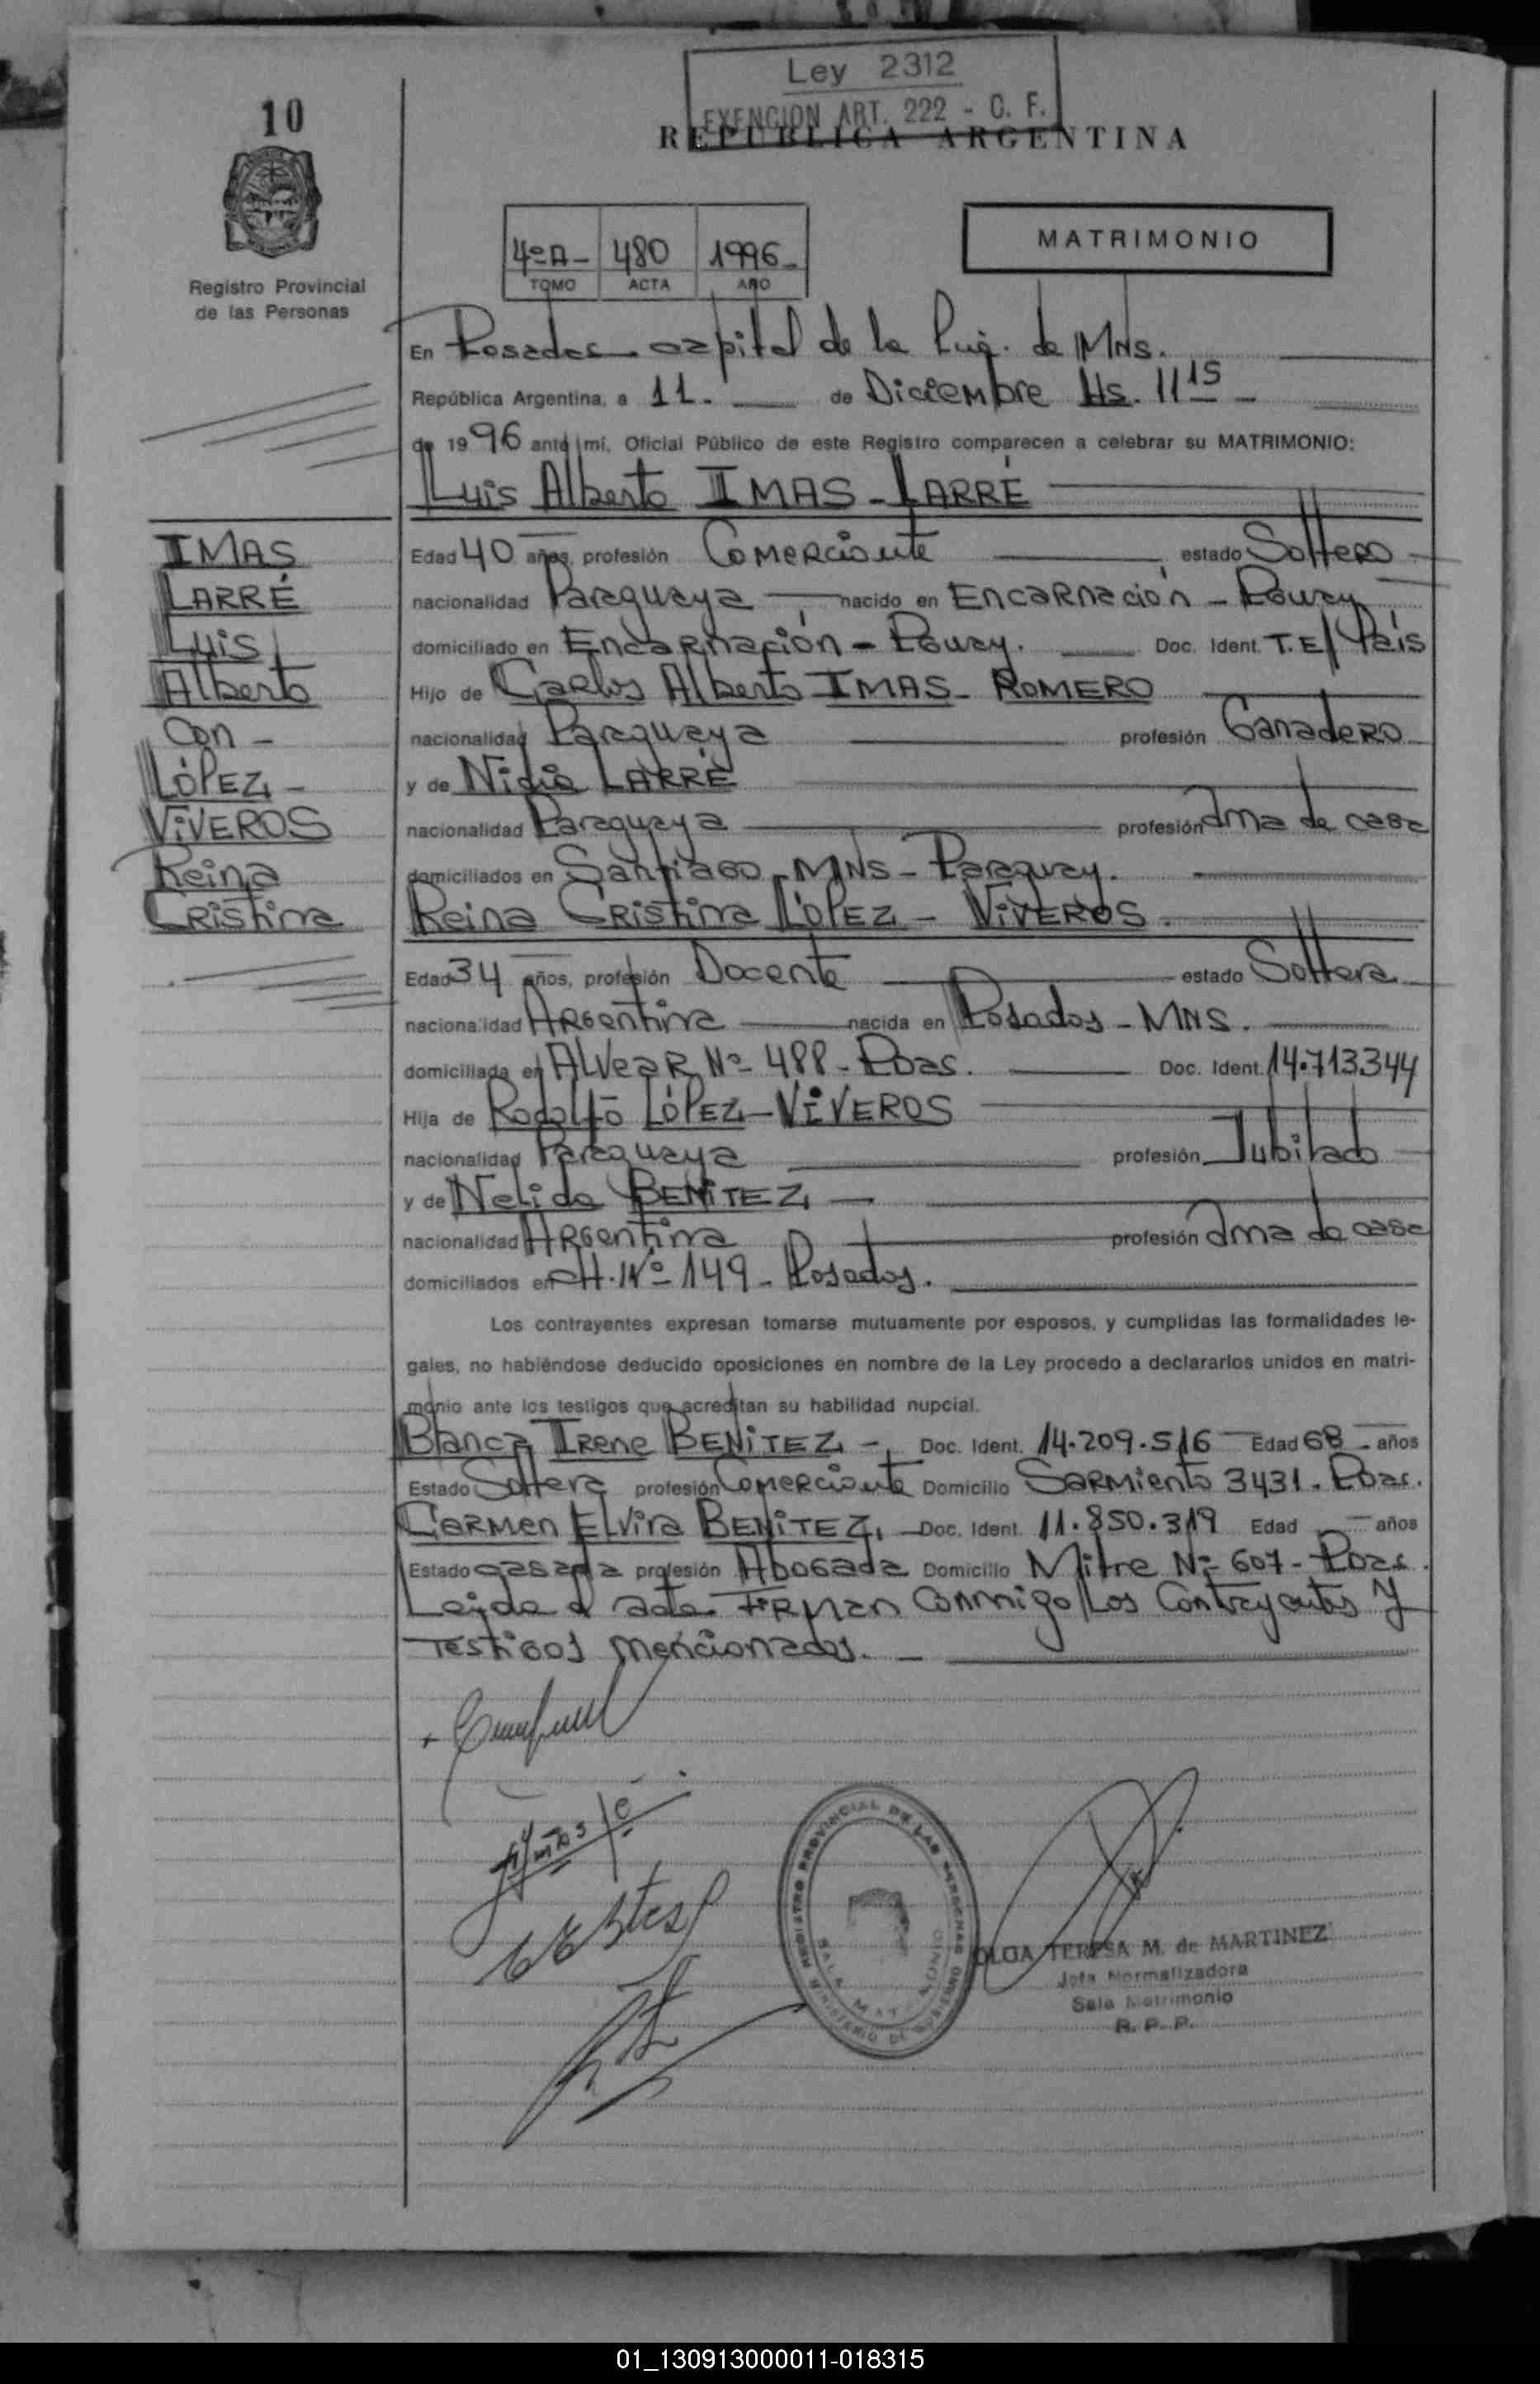 Ley 2312
EXENCION ART. 222 - C. F.
10
REPUBLICA ARGENTINA
Registro Provincial
de las Personas
4º A - 480 1996 -
TOMO ACTA AÑO
MATRIMONIO
En Posadas - capital de la Prov. de MNS.
República Argentina, a 11. de Diciembre Hs. 11 15 -
de 1996 ante mí, Oficial Público de este Registro comparecen a celebrar su MATRIMONIO:
Luis Alberto IMAS - LARRÉ
IMAS
LARRÉ
Luis
Alberto
Con -
LÓPEZ -
VIVEROS
Reina
Cristina
Edad 40 años, profesión Comerciante estado Soltero
nacionalidad Paraguaya nacido en Encarnación -
domiciliado en Encarnación - Doc. Ident. T.E/ País
Hijo de Carlos Alberto IMAS - ROMERO
nacionalidad Paraguaya profesión Ganadero
y de Nidia LARRÉ
nacionalidad Paraguaya profesión Ama de casa
domiciliados en Santiago - MNS - Paraguay.
Reina Cristina LÓPEZ - VIVEROS.
Edad 34 años, profesión Docente estado Soltera
nacionalidad Argentina nacida en Posadas - MNS.
domiciliada en Alvear Nº 488 - Pdas. Doc. Ident. 14.713.344
Hija de Rodolfo LÓPEZ - VIVEROS
nacionalidad Paraguaya profesión Jubilado
y de Nelida BENITEZ
nacionalidad Argentina profesión Ama de casa
domiciliados en CH. Nº 149 - Posadas.
Los contrayentes expresan tomarse mutuamente por esposos, y cumplidas las formalidades le-
gales, no habiéndose deducido oposiciones en nombre de la Ley procedo a declararlos unidos en matri-
monio ante los testigos que acreditan su habilidad nupcial.
Blanca Irene BENITEZ - Doc. Ident. 14.209.516 Edad 68 - años
Estado Soltera profesión Comerciante Domicilio Sarmiento 3431 - Pdas.
Carmen Elvira BENITEZ, Doc. Ident. 11.850.319 Edad - años
Estado casada profesión Abogada Domicilio Mitre Nº 607 - Pdas.
Leida el acta. Firman conmigo los Contrayentes y
testigos mencionados. -
REGISTRO PROVINCIAL DE LAS PERSONAS
MINISTERIO DE GOBIERNO
SALA MATRIMONIO
OLGA TERESA M. de MARTINEZ
Jefa Normalizadora
Sala Matrimonio
R. P. P.
01_130913000011-018315